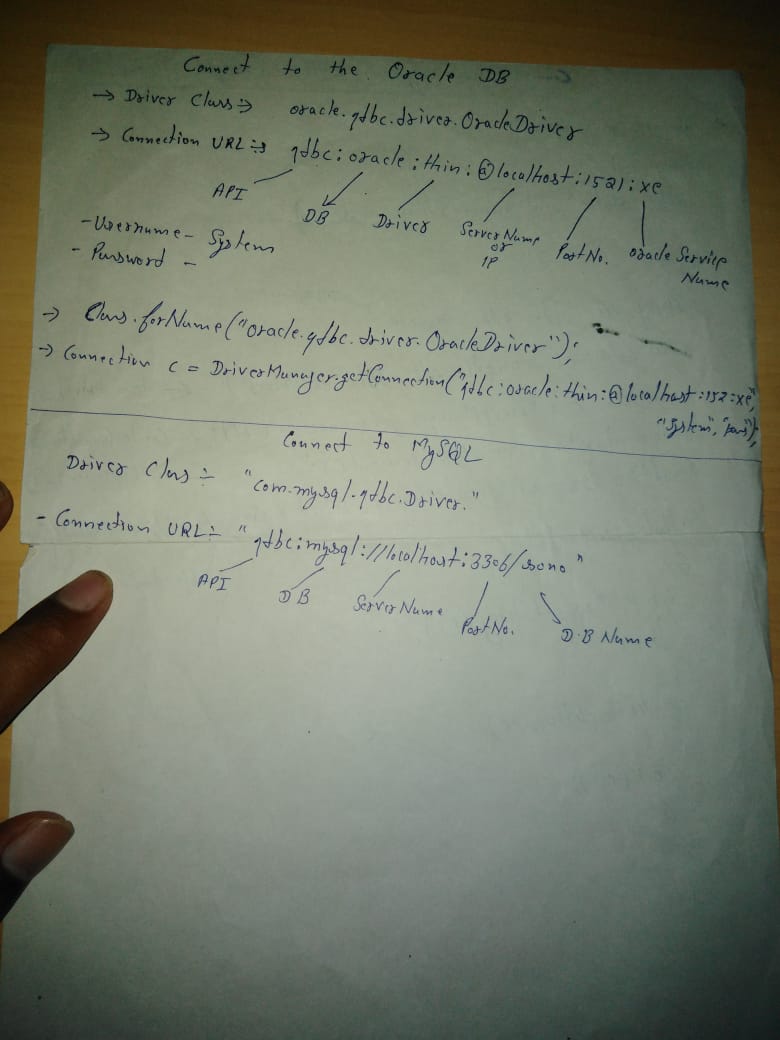 Connect to the Oracle DB
→ Driver Class :→ oracle.jdbc.driver.OracleDriver
→ Connection URL :→ jdbc:oracle:thin:@localhost:1521:xe
API DB Driver Server Name or IP Port No. oracle Service Name
- Username - System
- Password -
→ Class.forName("oracle.jdbc.driver.OracleDriver");
→ Connection c = DriverManager.getConnection("jdbc:oracle:thin:@localhost:152:xe",
"System", "pass");
Connect to MySQL
Driver Class :- "com.mysql.jdbc.Driver."
- Connection URL :- "jdbc:mysql://localhost:3306/sono"
API DB Server Name Port No. D.B Name